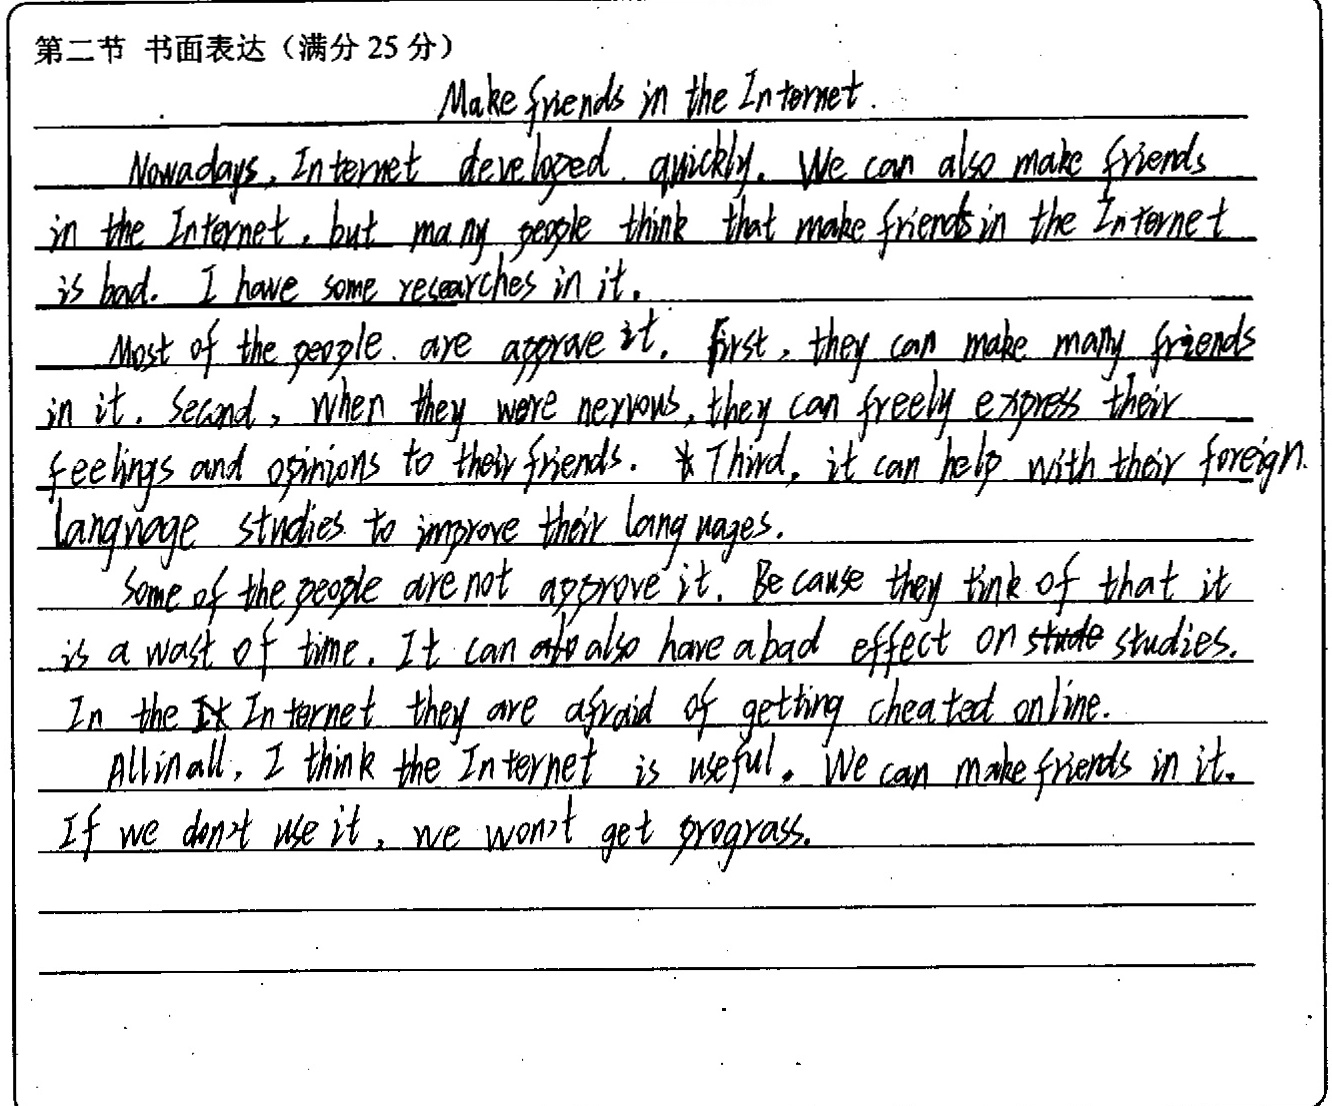 第二节 书面表达（满分 25 分）
Make friends in the Internet.
Nowadays, Internet developed quickly. We can also make friends
in the Internet, but many people think that make friends in the Internet
is bad. I have some researches in it.
Most of the people are approve it. first, they can make many friends
in it. Second, when they were nervous, they can freely express their
feelings and opinions to their friends. Third, it can help with their foreign
language studies to improve their languages.
Some of the people are not approve it. Because they tink of that it
is a wast of time. It can also have a bad effect on studies.
In the Internet they are afraid of getting cheated online.
All in all, I think the Internet is useful. We can make friends in it.
If we don't use it, we won't get prograss.